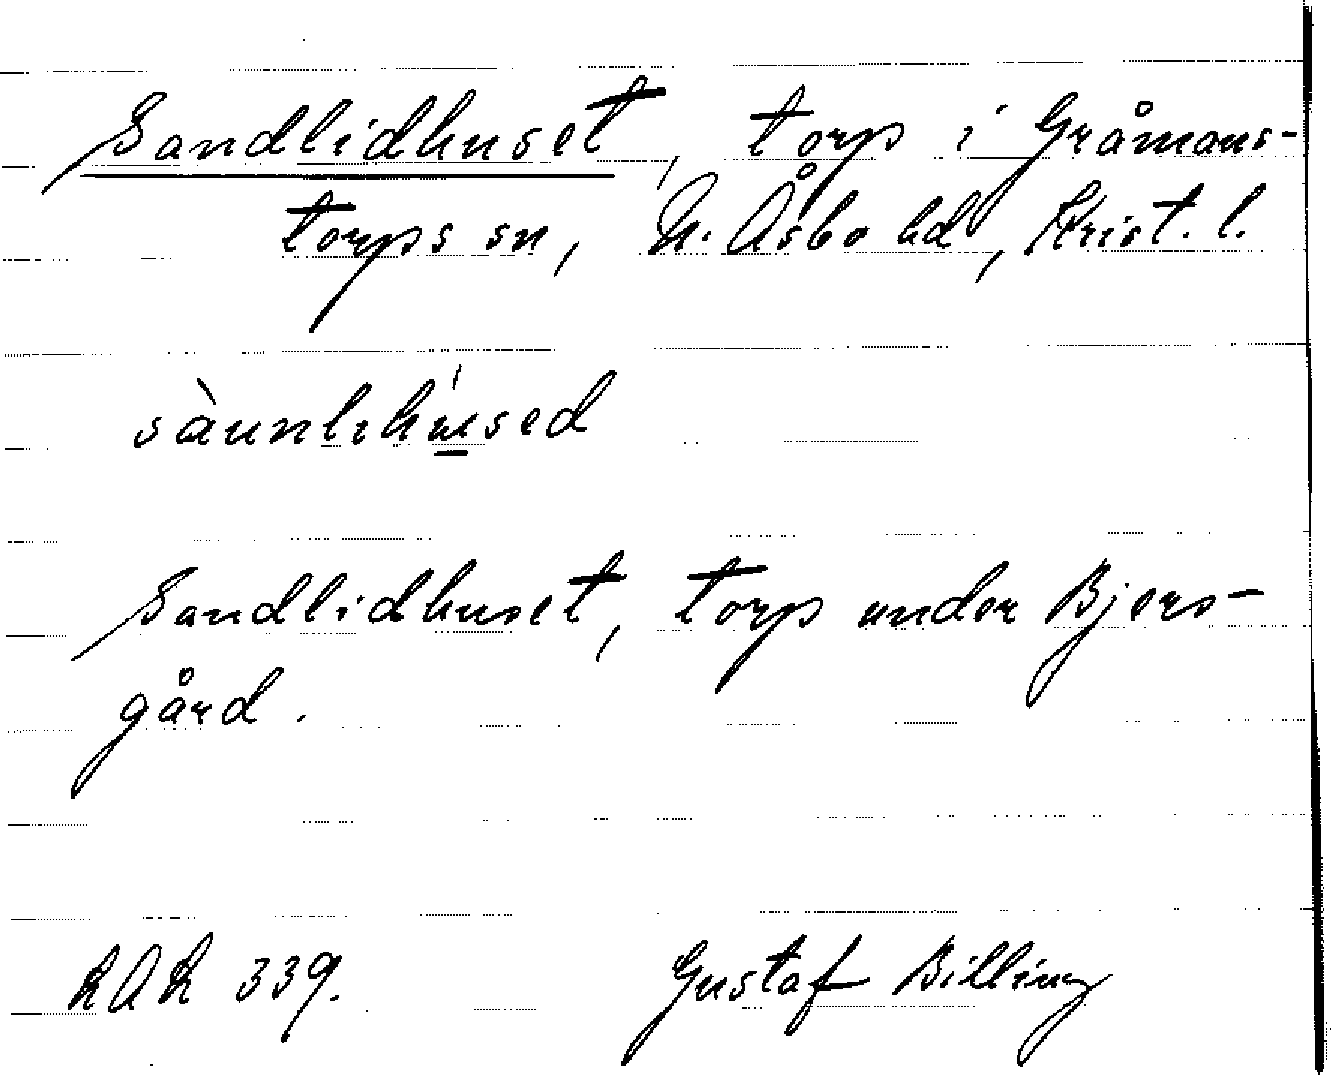 Sandlidhuset, torp i Gråmans-
torps sn, N. Åsbo hd, Krist. l.
sàunlihú̲sed
Sandlidhuset, torp under Bjers-
gård.
RAR 339. Gustaf Billing